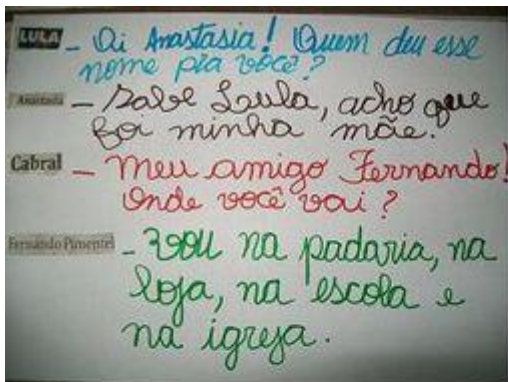 LULA - Oi Anastasia! Quem deu esse
nome pra você?
Anastasia - Sabe Laula, acho que
foi minha mãe.
Cabral - Meu amigo Fernando!
Onde você vai?
Fernando Pimentel - Vou na padaria, na
loja, na escola e
na igreja.